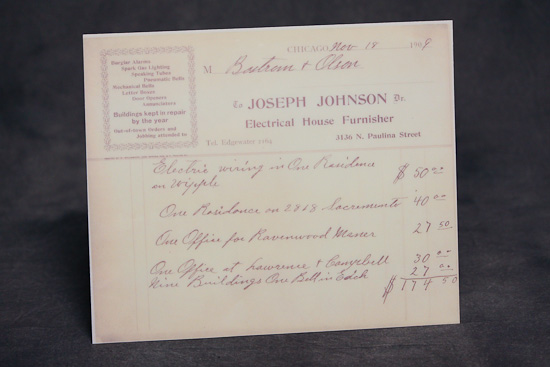 Burglar Alarms
Spark Gas Lighting
Speaking Tubes
Pneumatic Bells
Mechanical Bells
Letter Boxes
Door Openers
Annunciators
Buildings kept in repair
by the year
Out-of-town Orders and
Jobbing attended to
CHICAGO, Nov 18 1908
M Bostrom & Olson
To JOSEPH JOHNSON Dr.
Electrical House Furnisher
Tel. Edgewater 3136 N. Paulina Street
Electric wiring in One Residence
on Wipple $50.00
One Residence on 2818 Sacremento 40 00
One Office for Ravenwood Maner 27 50
One Office at Lawrence & Campbell 30 00
Nine Buildings One Bell in Each 27 00
$174 50